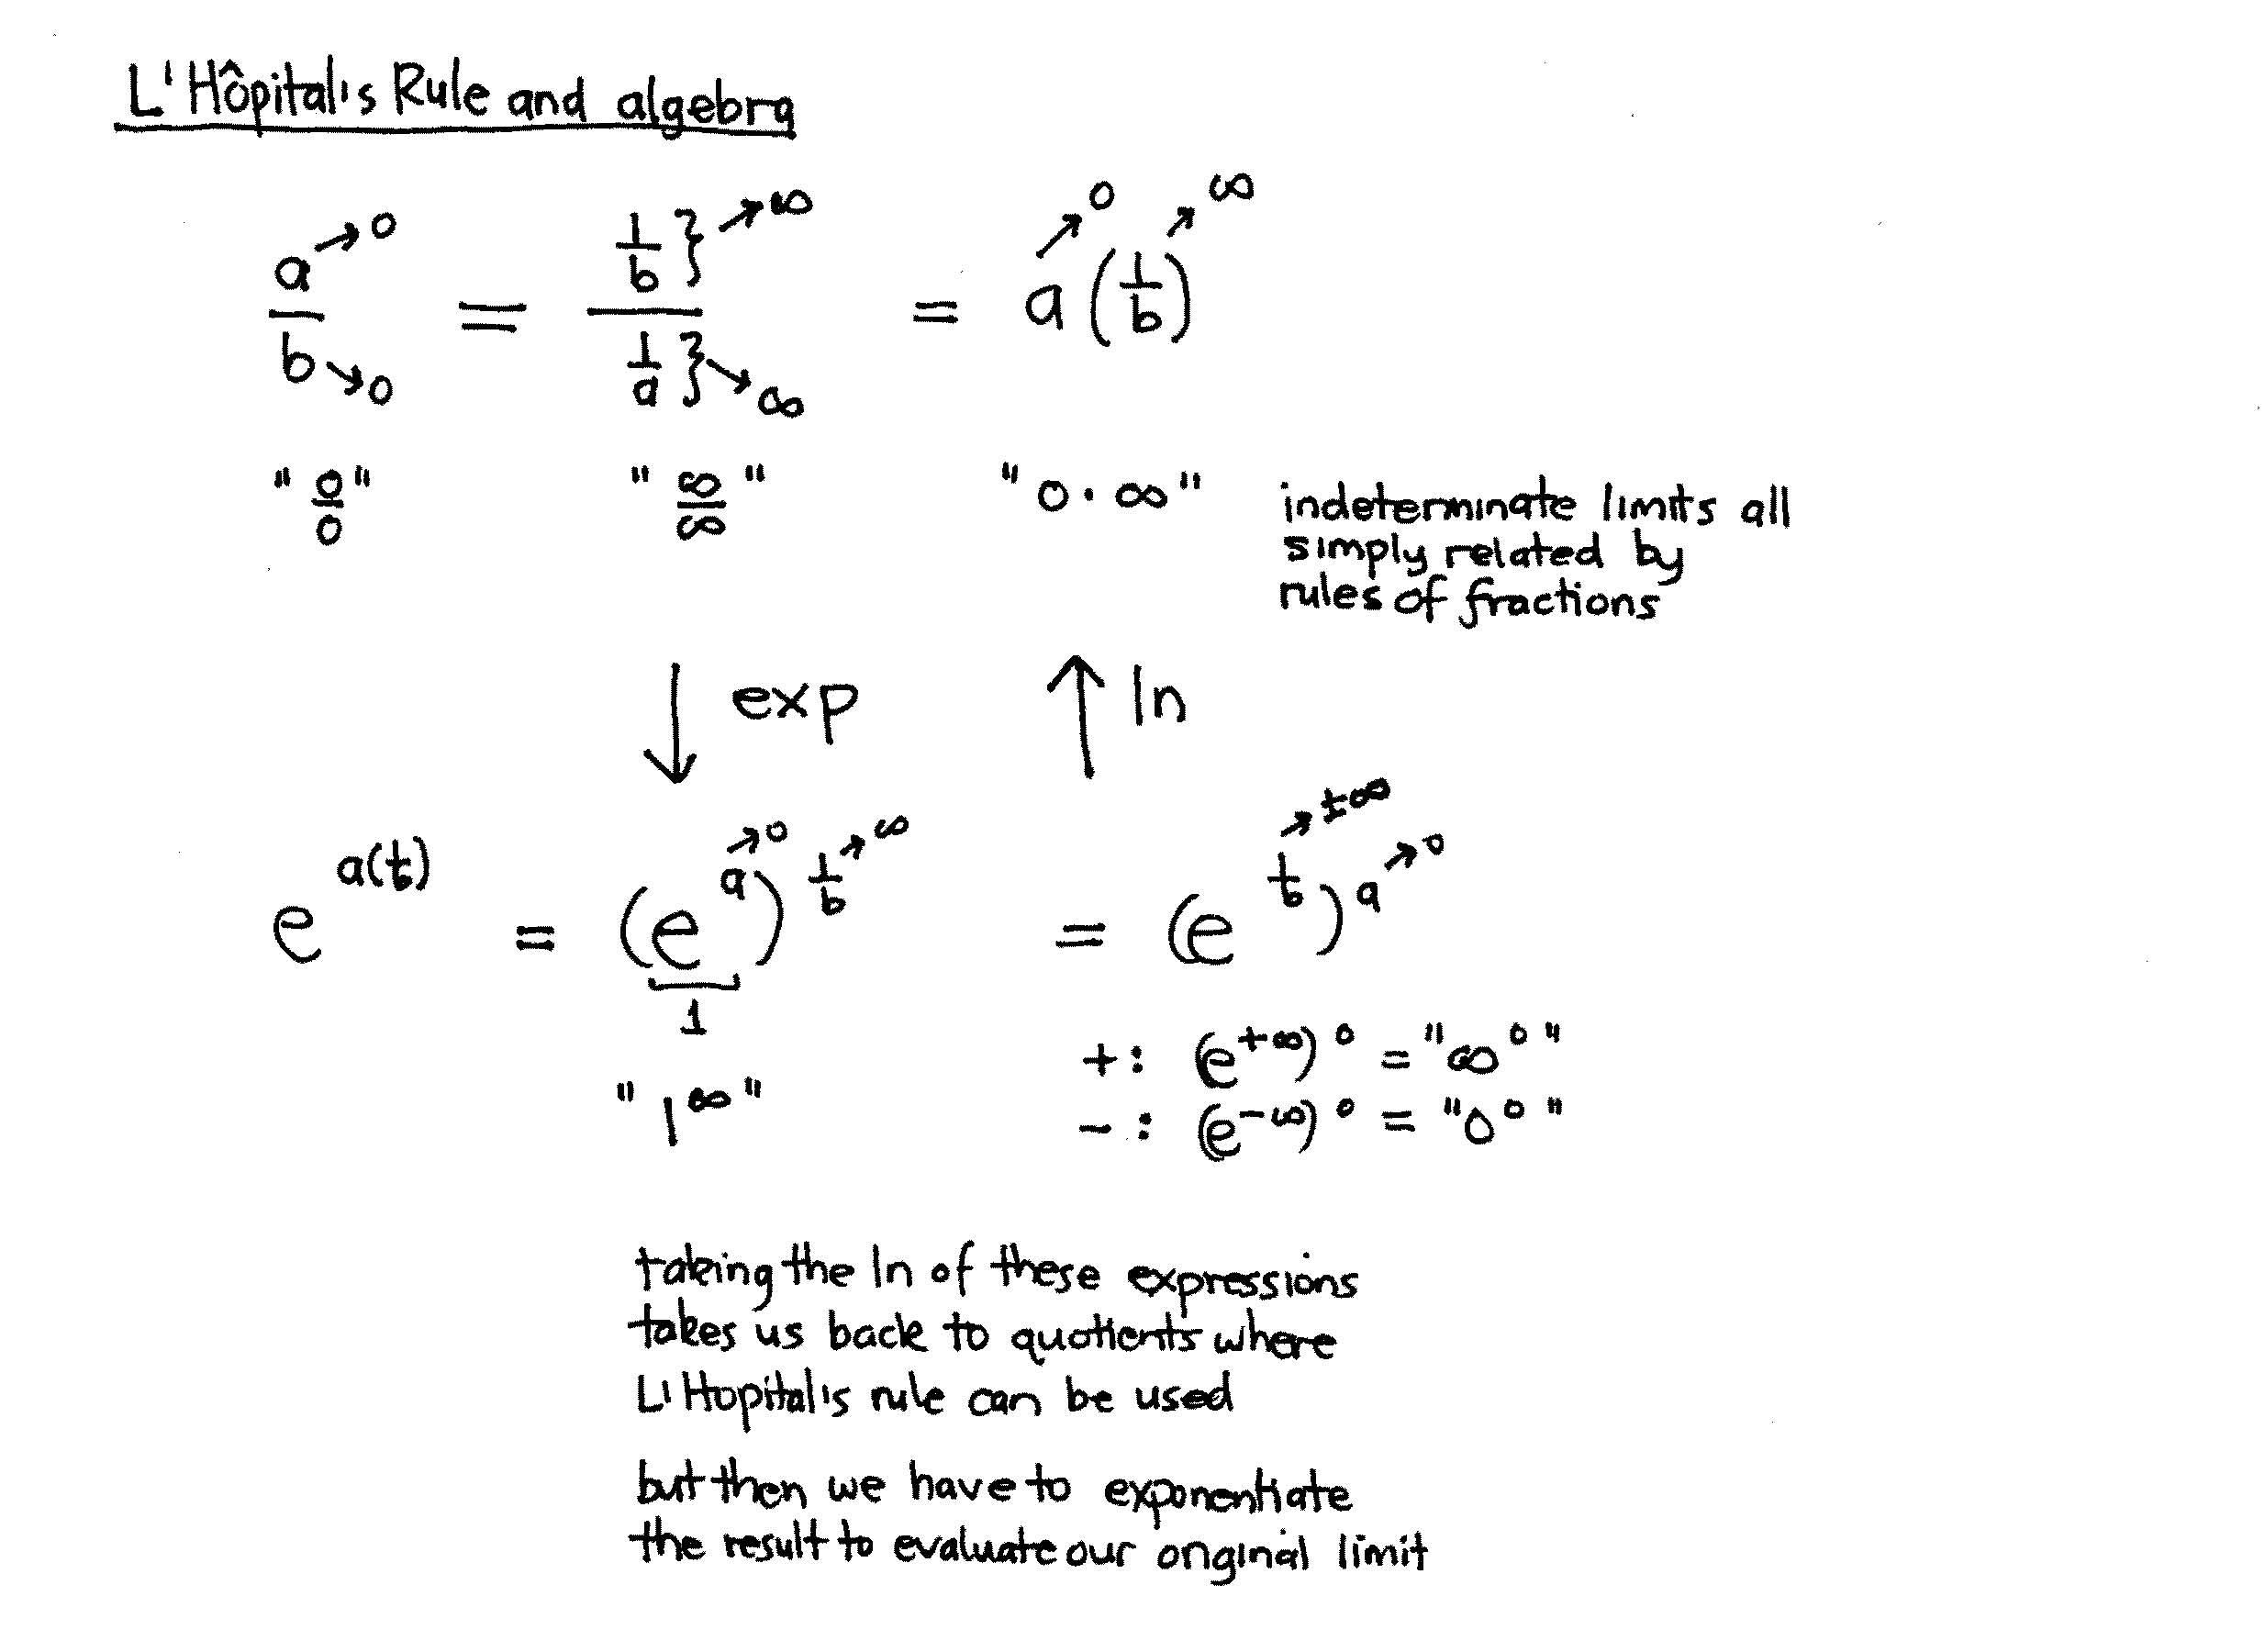 L'Hôpital's Rule and algebra
a→0 / b→0 = 1/b}→∞ / 1/a}→∞ = a→0 (1/b)→∞
"0/0" "∞/∞" "0·∞" indeterminate limits all
simply related by
rules of fractions
↓ exp ↑ ln
e^a(1/b) = (e^a→0)^1/b→∞ = (e^1/b→±∞)^a→0
1
"1^∞"
+: (e^+∞)^0 = "∞^0"
-: (e^-∞)^0 = "0^0"
taking the ln of these expressions
takes us back to quotients where
L'Hopital's rule can be used
but then we have to exponentiate
the result to evaluate our original limit